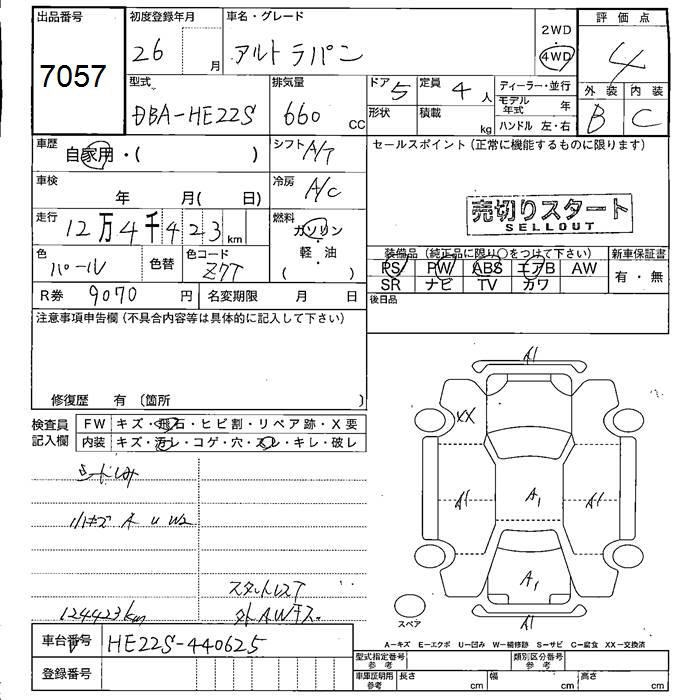 出品番号
7057
初度登録年月
26 月
車名・グレード
アルトラパン
2WD
4WD
評価点
4
外装 内装
B C
型式
DBA-HE22S
排気量
660 CC
ドア 5
定員 4 人
形状
積載 kg
ディーラー・並行
モデル年式 年
ハンドル 左・右
車歴
自家用・( )
シフト A/T
セールスポイント(正常に機能するものに限ります)
車検
年 月( 日)
冷房 A/C
売切りスタート
SELLOUT
走行
12万4千423km
燃料
ガソリン
・
軽・油
( )
色
パール
色替
色コード
Z7T
装備品(純正品に限り○をつけて下さい)
新車保証書
PS PW ABS エアB AW
SR ナビ TV カワ
有・無
R券 9070 円
名変期限 月 日
後日品
注意事項申告欄(不具合内容等は具体的に記入して下さい)
修復歴 有 〔箇所 〕
検査員
記入欄
FW キズ・飛石・ヒビ割・リペア跡・X要
内装 キズ・汚レ・コゲ・穴・スレ・キレ・破レ
小キズ A U W2
124423km
スタットレスT
外AWキス
A1
XX
A1
A1
A1
A1
A1
スペア
A-キズ E-エクボ U-凹み W-補修跡 S-サビ C-腐食 XX-交換済
車台番号
HE22S-440625
登録番号
型式指定番号
参考
類別区分番号
参考
車庫証明用
参考
長さ cm
幅 cm
高さ cm